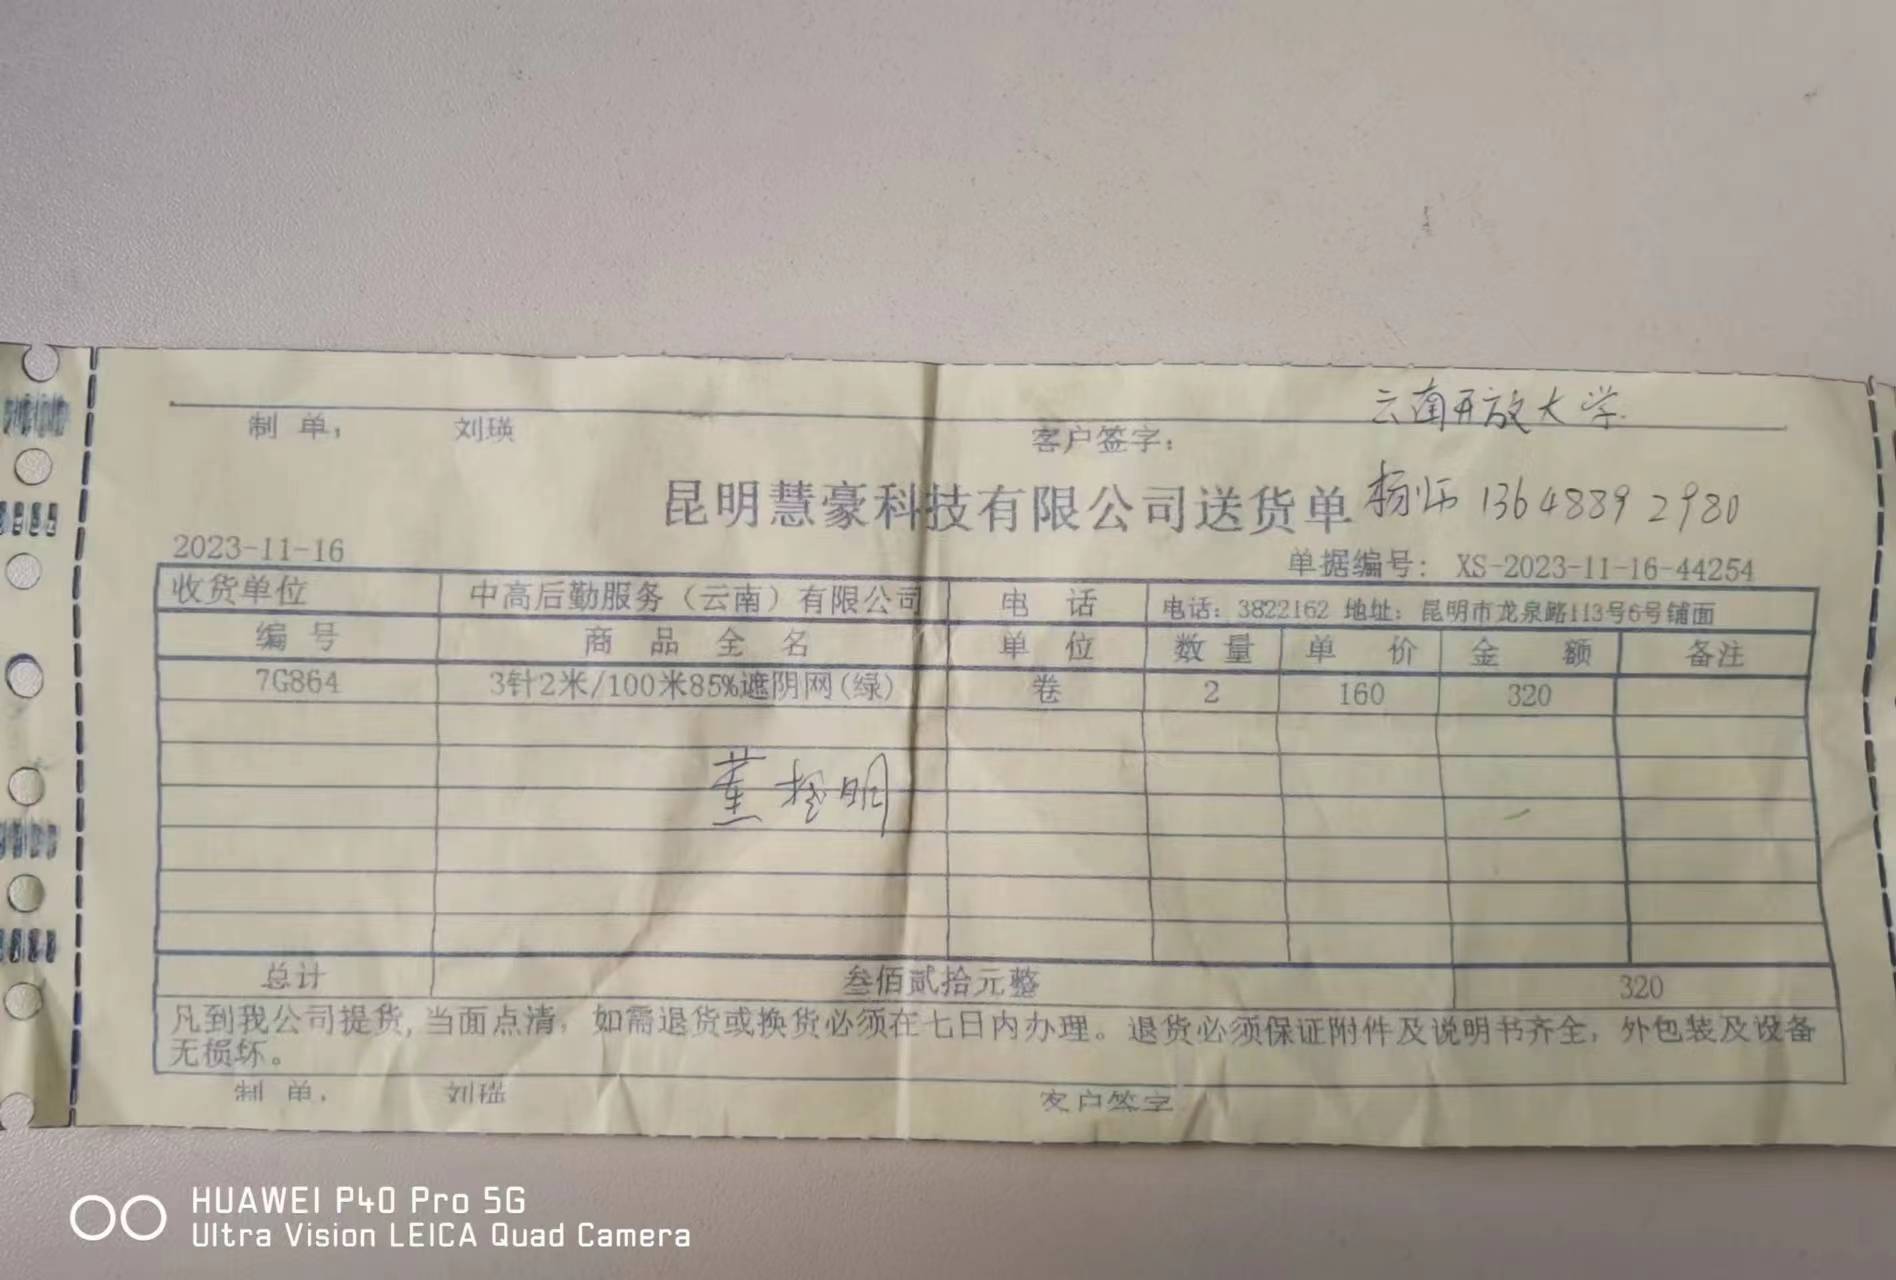 云南开放大学
制 单： 刘瑛 客户签字：
昆明慧豪科技有限公司送货单 杨师 13648892980
2023-11-16 单据编号： XS-2023-11-16-44254
收货单位 中高后勤服务（云南）有限公司 电 话 电话：3822162 地址：昆明市龙泉路113号6号铺面
编 号 商 品 全 名 单 位 数 量 单 价 金 额 备注
7G864 3针2米/100米85%遮阴网(绿) 卷 2 160 320
明
总计 叁佰贰拾元整 320
凡到我公司提货，当面点清，如需退货或换货必须在七日内办理。退货必须保证附件及说明书齐全，外包装及设备
无损坏。
制 单： 刘瑛 客户签字
HUAWEI P40 Pro 5G
Ultra Vision LEICA Quad Camera